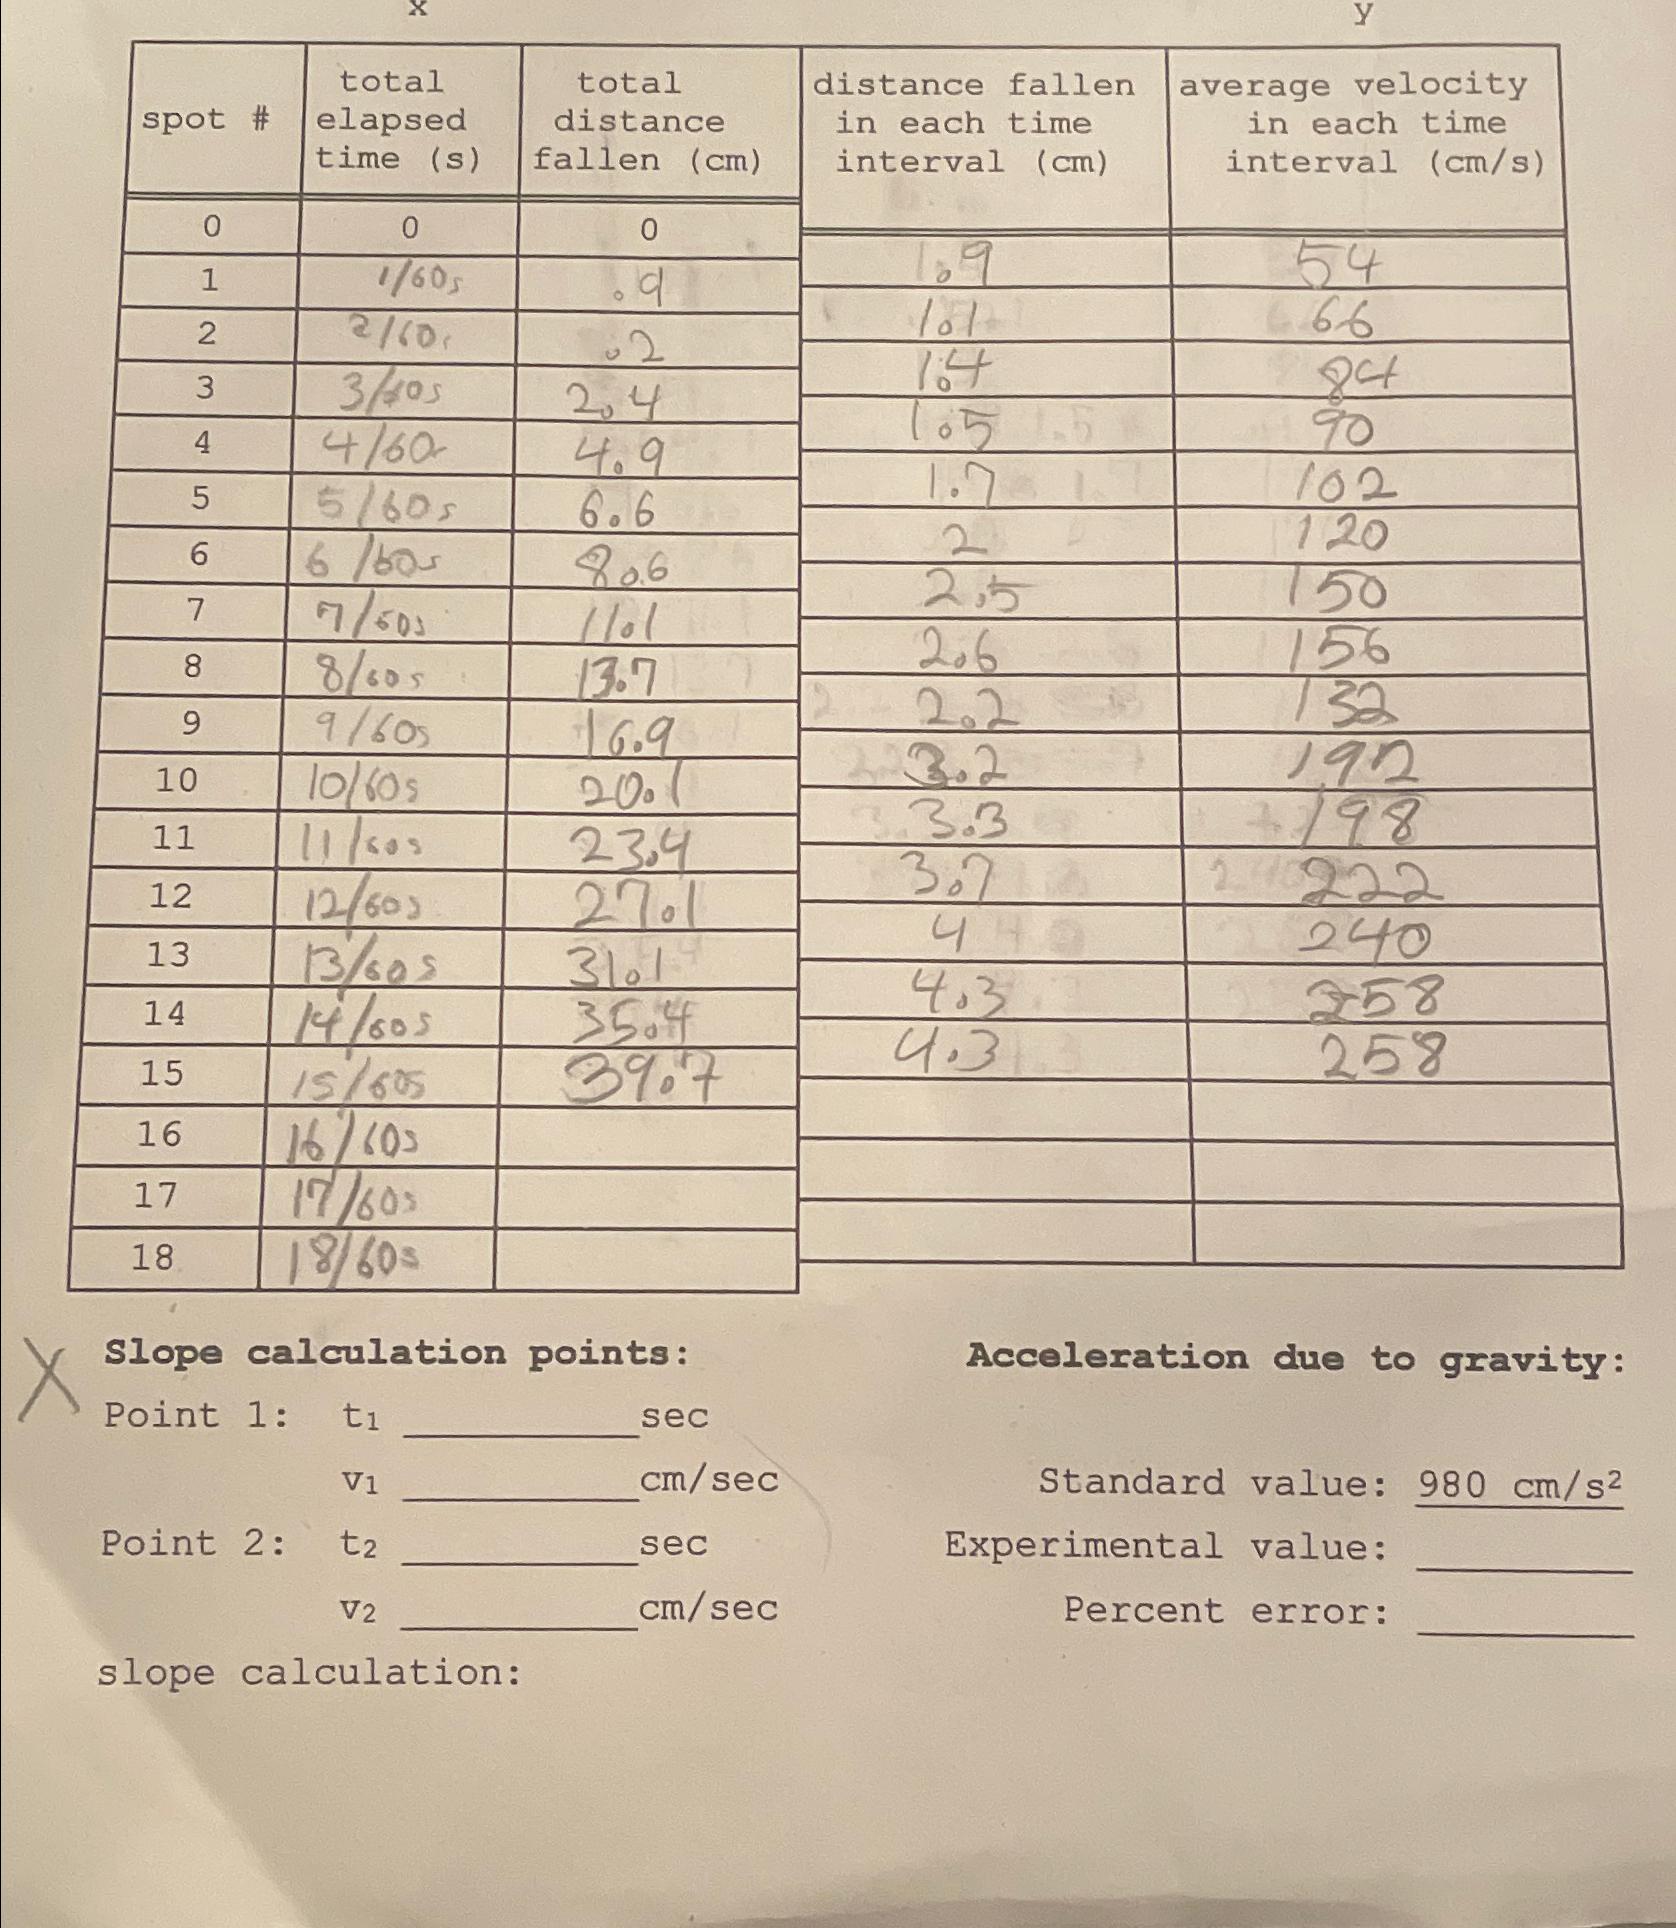 x y
spot # total elapsed time (s) total distance fallen (cm) distance fallen in each time interval (cm) average velocity in each time interval (cm/s)
0 0 0
1 1/60s .9 1.9 54
2 2/60s .2 1.1 66
3 3/60s 2.4 1.4 84
4 4/60s 4.9 1.5 90
5 5/60s 6.6 1.7 102
6 6/60s 8.6 2 120
7 7/60s 11.1 2.5 150
8 8/60s 13.7 2.6 156
9 9/60s 16.9 2.2 132
10 10/60s 20.1 3.2 192
11 11/60s 23.4 3.3 198
12 12/60s 27.1 3.7 222
13 13/60s 31.1 4 240
14 14/60s 35.4 4.3 258
15 15/60s 39.7 4.3 258
16 16/60s
17 17/60s
18 18/60s
X Slope calculation points: Acceleration due to gravity:
Point 1: t1 ________ sec
v1 ________ cm/sec Standard value: 980 cm/s²
Point 2: t2 ________ sec Experimental value: ________
v2 ________ cm/sec Percent error: ________
slope calculation: